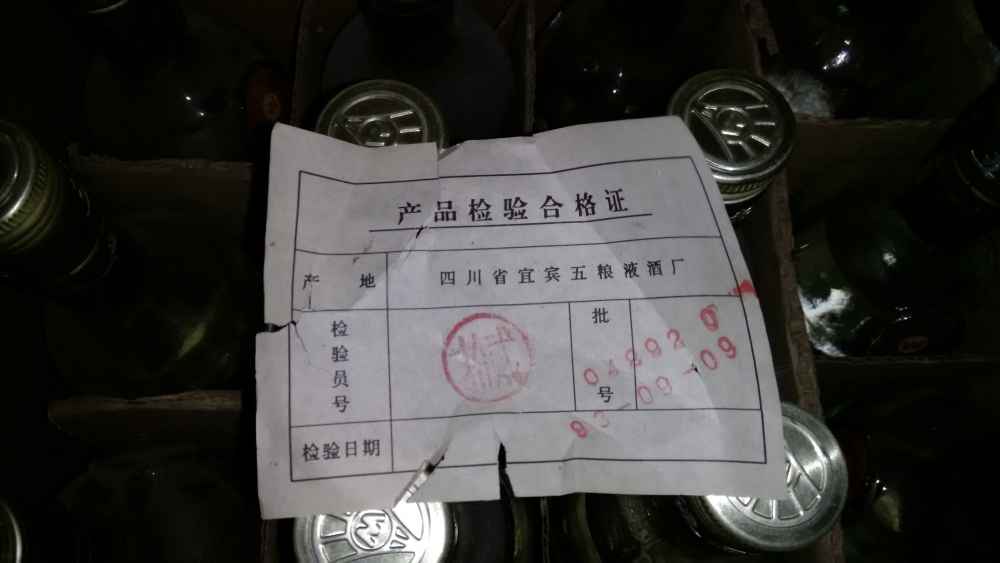 产品检验合格证
产地 四川省宜宾五粮液酒厂
检验员号
批号
-09
检验日期